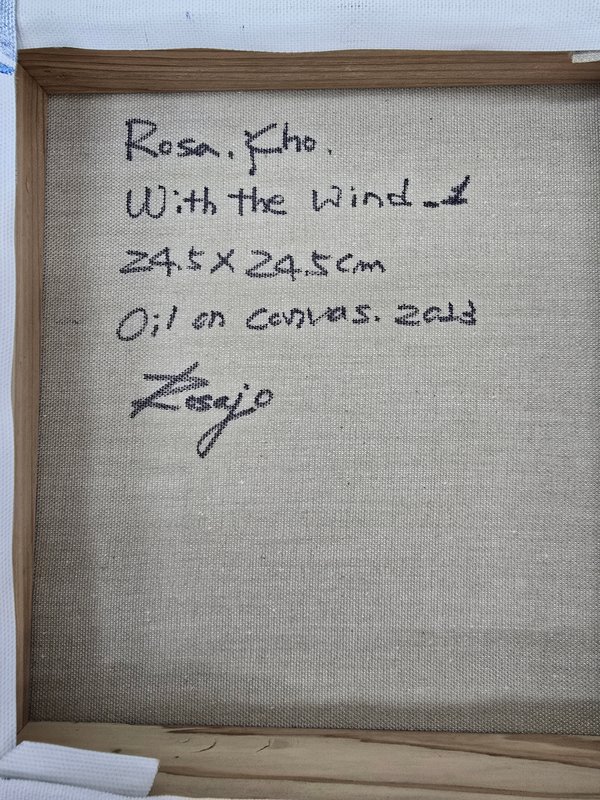 Rosa. Kho.
With the wind_1
24.5 X 24.5 cm
Oil on canvas. 2023
Rosajo